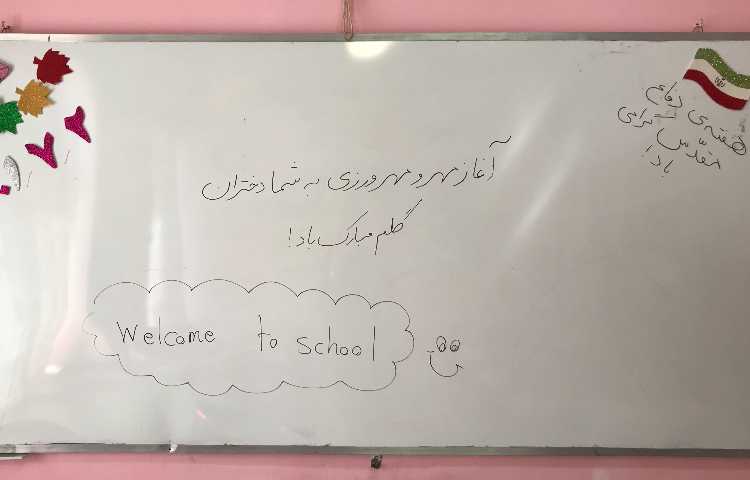 هفته‌ی دفاع
مقدّس گرامی
باد!
آغاز مهر و مهرورزی به شما دختران
گلم مبارک باد!
Welcome to school